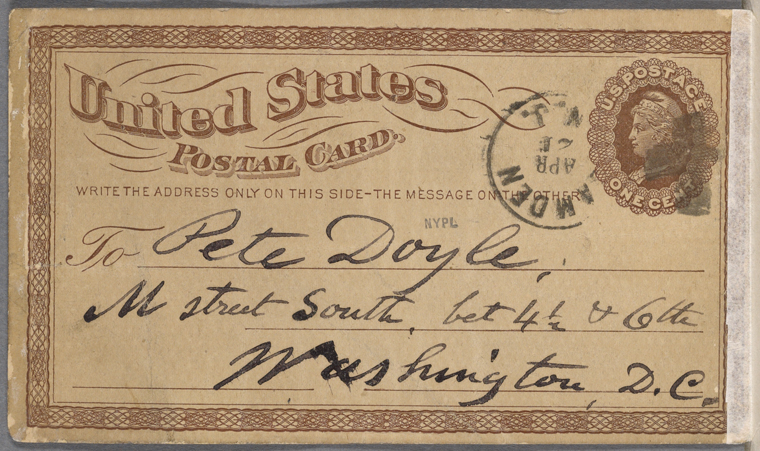 United States
POSTAL CARD.
U.S. POSTAGE
ONE CENT
CAMDEN
APR
N.J.
WRITE THE ADDRESS ONLY ON THIS SIDE-THE MESSAGE ON THE OTHER
NYPL
To Pete Doyle,
M street South, bet 4½ & 6th
Washington, D.C.